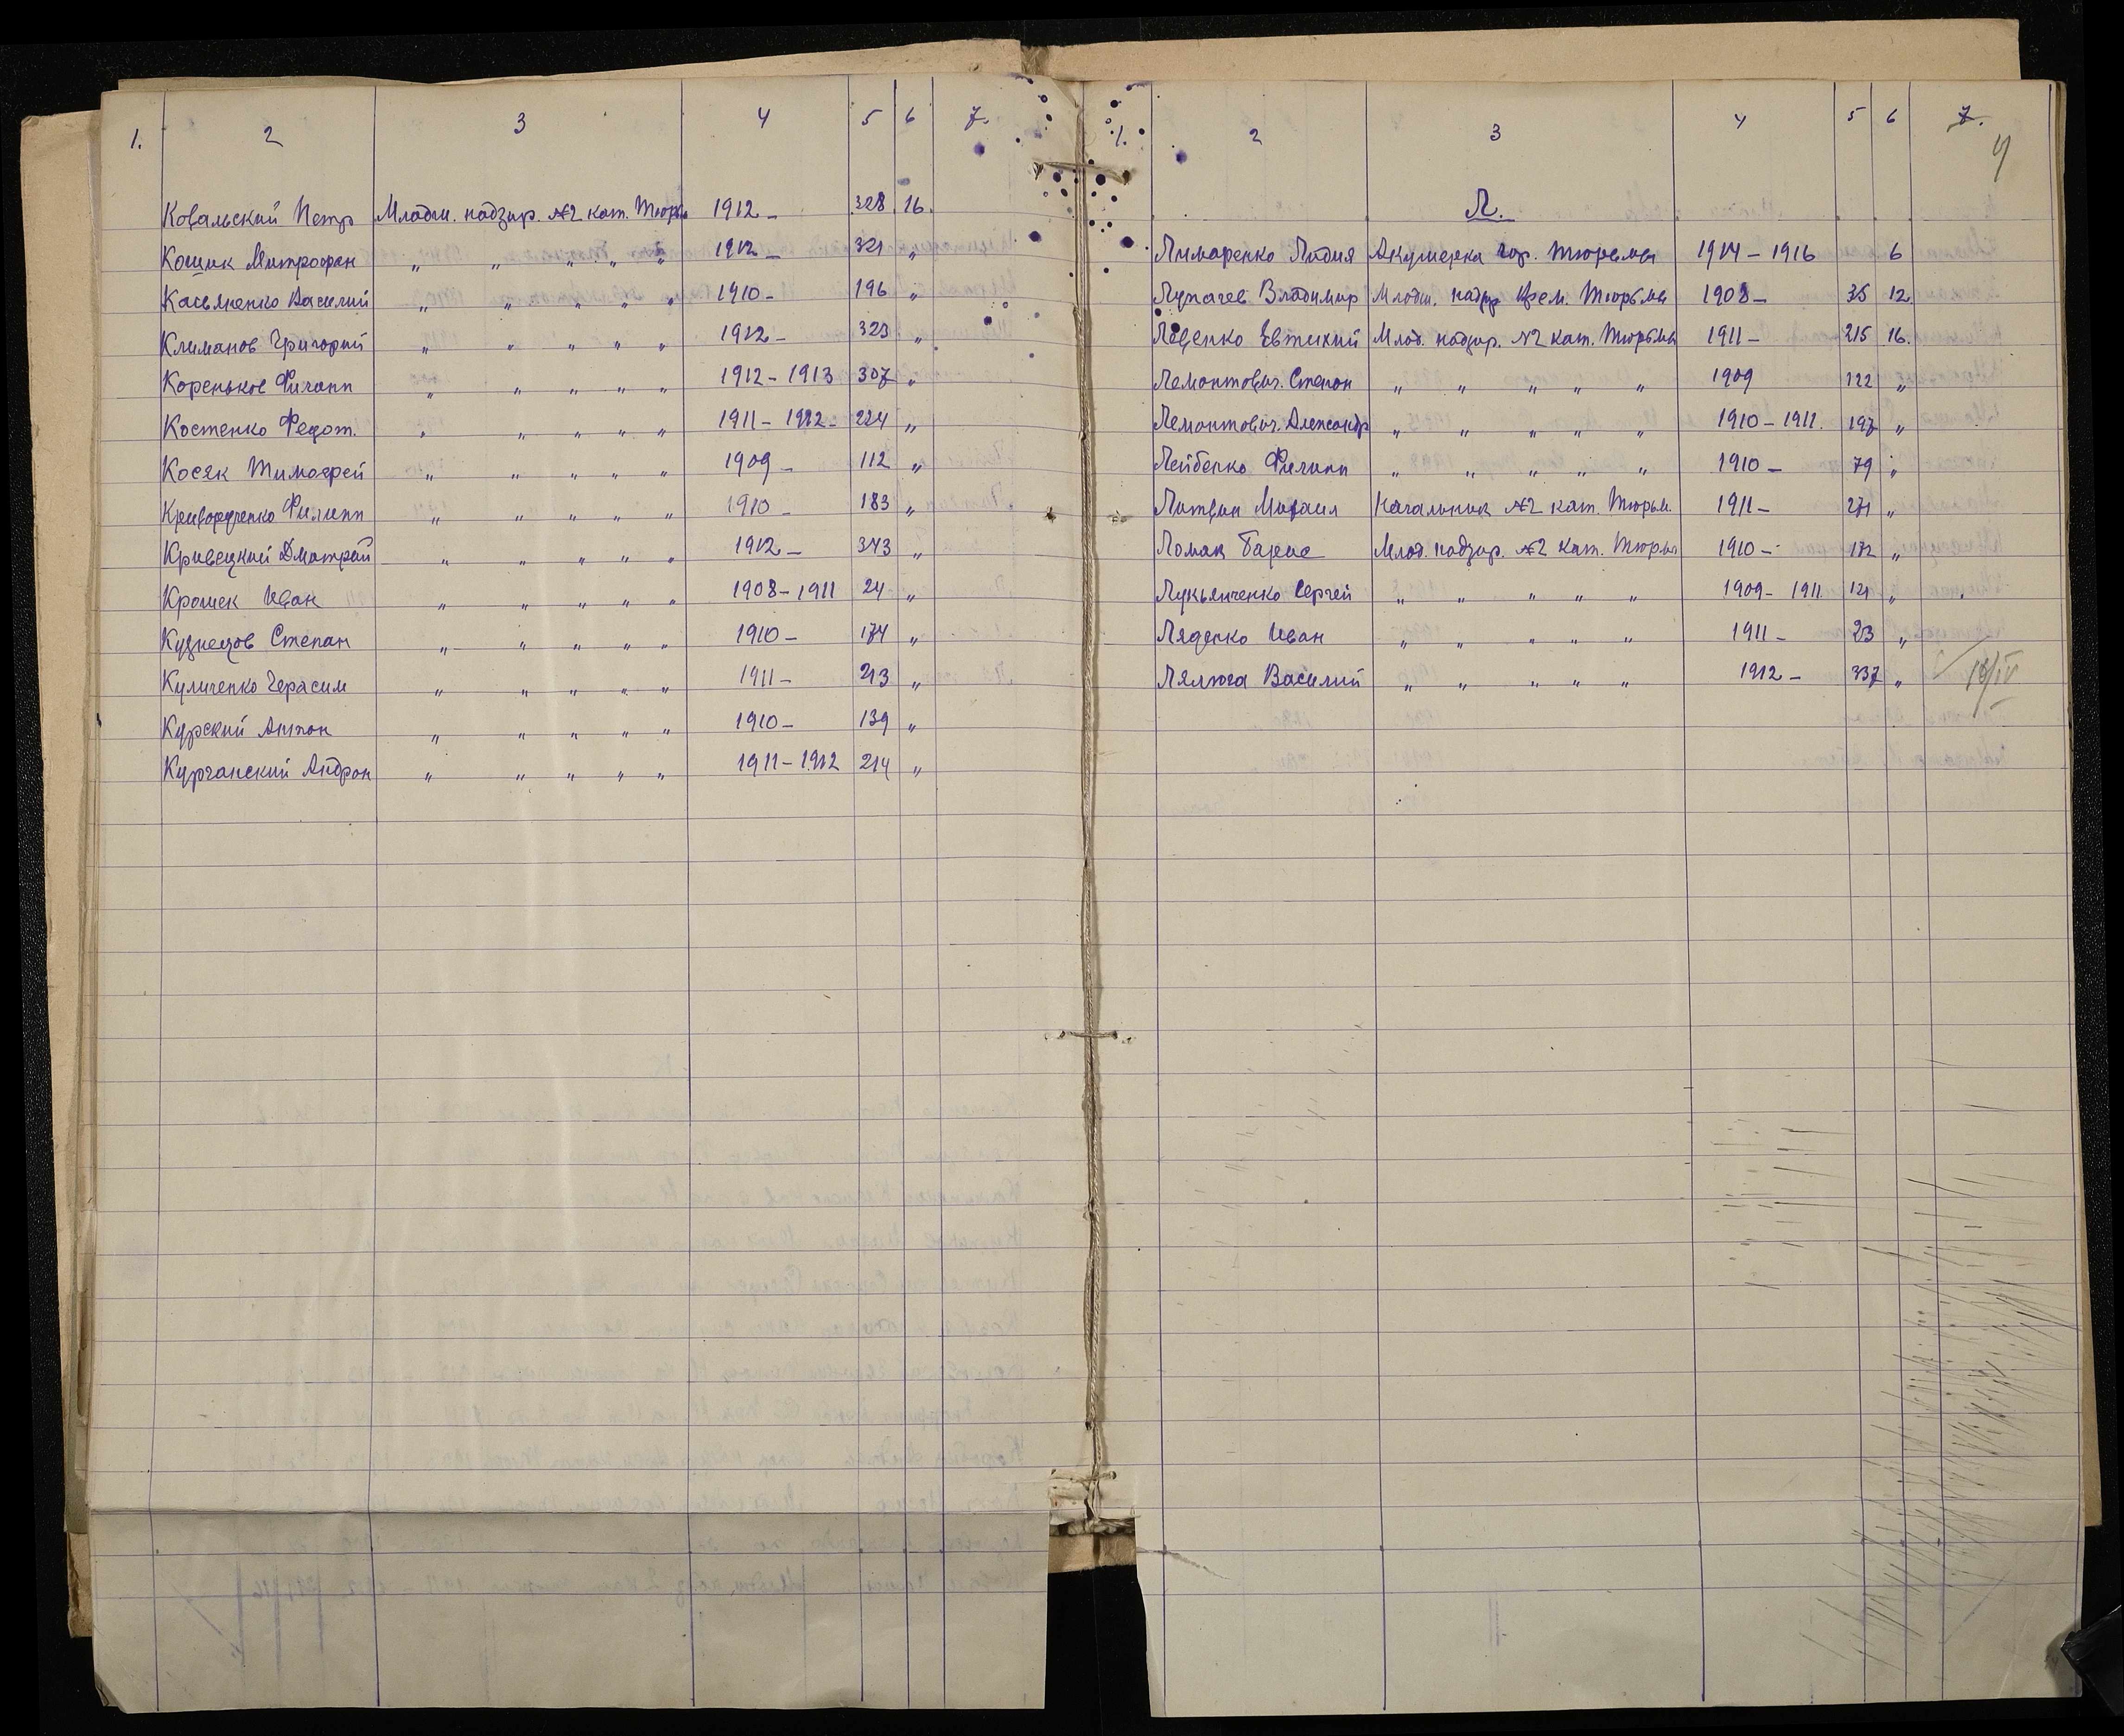 1. 2 3 4 5 6 7.
Ковальский Петр Младш. надзир. №2 кат. Тюрь 1912 – 328 16.
Кощик Митрофан „ „ „ „ „ 1912 – 321 „
Касьяненко Василий „ „ „ „ „ 1910 – 196 „
Климанов Григорий „ „ „ „ „ 1912 – 323 „
Коренькое Филипп „ „ „ „ „ 1912 – 1913 307 „
Костенко Федот. „ „ „ „ „ 1911 – 1912 – 224 „
Косяк Тимофей „ „ „ „ „ 1909 – 112 „
Филипп „ „ „ „ „ 1910 – 183 „
Кривецкий Дмитрий „ „ „ „ „ 1912 – 343 „
Кромек Иван „ „ „ „ „ 1908 – 1911 24 „
Кузнецов Степан „ „ „ „ „ 1910 – 174 „
Куличенко Герасим „ „ „ „ „ 1911 – 213 „
Курский Антон „ „ „ „ „ 1910 – 139 „
Курганский Андрон „ „ „ „ „ 1911 – 1912 214 „
1. 2 3 4 5 6 7.
Л.
Лимаренко Лидия Акушерка гор. тюрьмы 1914 – 1916 6
Лупачев Владимир Младш. надзир Врем. Тюрьмы 1908 – 35 12
Левенко Евтихий Млад. надзир. №2 кат. Тюрьмы 1911 – 215 16.
Лемонтович. Степан „ „ „ „ „ 1909 122 „
Лемонтович. Александр „ „ „ „ „ 1910 – 1911. 197 „
Лейбенко Филипп „ „ „ „ „ 1910 – 79 „
Литвин Михаил Начальник №2 кат. Тюрьм. 1911 – 271 „
Ломак Млад. надзир. №2 кат. Тюрьм 1910 – 172 „
Лукьянченко Сергей „ „ „ „ „ 1909 – 1911. 121 „
Ляденко Иван „ „ „ „ „ 1911 – 213 „
Лялюга Василий „ „ „ „ „ 1912 – 337 „